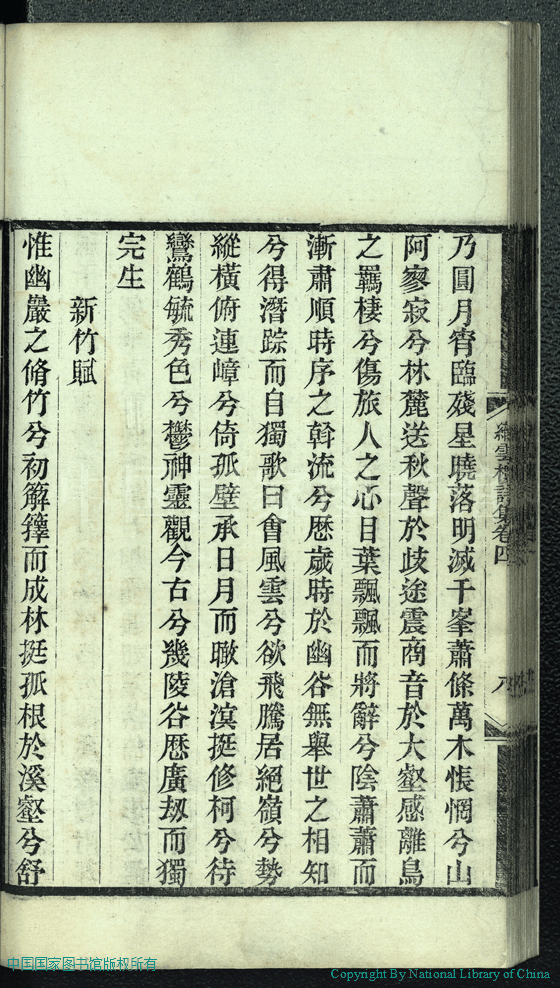 乃圓月宵臨殘星曉落明滅千峯蕭條萬木悵惘兮山
阿寥寂兮林麓送秋聲於歧途震商音於大壑感離鳥
之羈棲兮傷旅人之心目葉飄飄而將辭兮陰蕭蕭而
漸肅順時序之斡流兮歷歲時於幽谷無舉世之相知
兮得潛踪而自獨歌曰會風雲兮欲飛騰居絕嶺兮勢
縱橫俯連嶂兮倚孤壁承日月而瞰滄溟挺修柯兮待
鸞鶴毓秀色兮鬱神靈觀今古兮幾陵谷歷廣刼而獨
完生
新竹賦
惟幽巖之脩竹兮初解籜而成林挺孤根於溪壑兮舒
雲樓詩集卷四
八
中国国家图书馆版权所有
Copyright By National Library of China